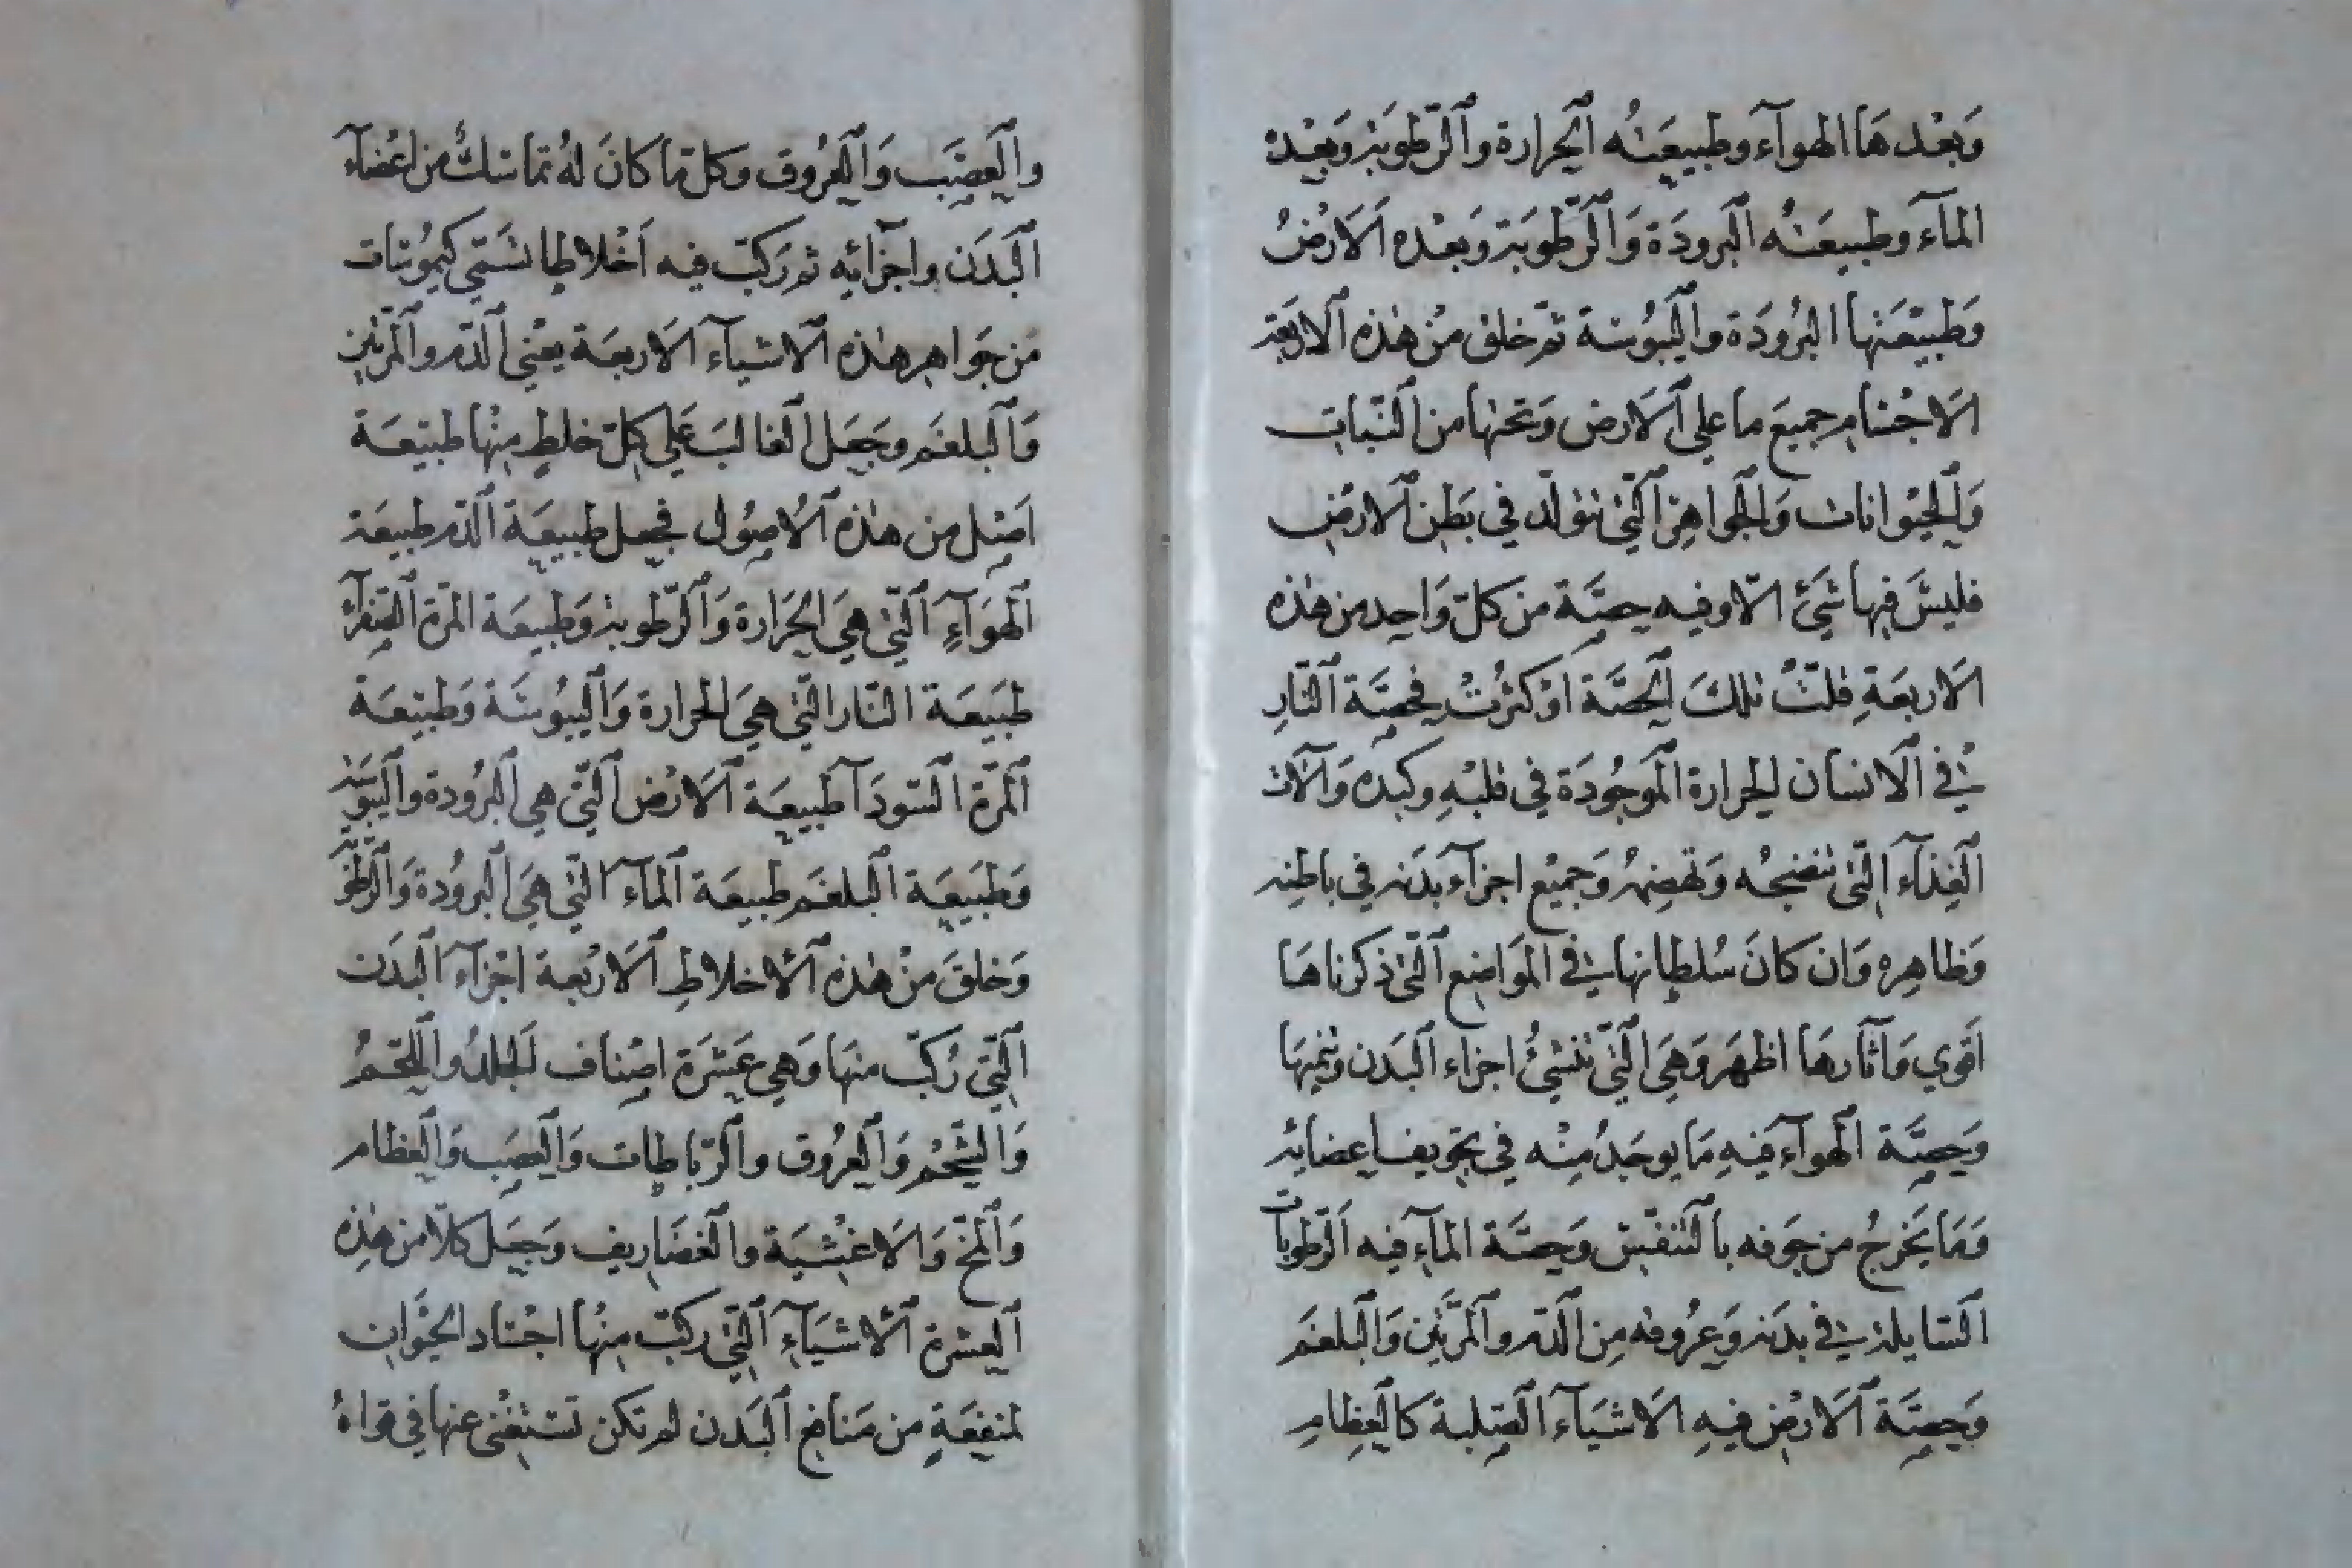 وَبَعْدهَا الهوآء وطبيعَتُه اَلحَرارة واَلرّطوبَة وَبعْده
المآء وطبيعَتُه اَلبَرودَة وَاَلرّطوبَة وَبعْده اَلاَرْضُ
وَطَبيْعَتها البُرودَة واَليَبُوسَة ثمّ خلق مْن هٰذه اَلاربَعَة
الاَجْسَام جميعَ ما على اَلاَرض وَتحتها من اَلنّبات
وَاَلحيَوانات وَالجَواهِر اَلّتي تتولّد في بَطن اَلارضِ
فليسَ فيها شَئ الّا وفيه حِصَّة من كلّ وَاحِد من هٰذه
الاَربعَةِ قلّتْ تلكَ اَلحصَّة اَوْ كثرُتْ فحِصَّة اَلنّارِ
في اَلانسان الحَرارة اَلموجُودَة في قلبْهِ وكبده وَاَلات
اَلغِذَآء الّتي تنضجُه وَتهضِمهُ وَجميْع اجزآء بَدَنه في باطنِه
وَظاهِره وَان كانَ سُلطانها في المَوَاضع اَلّتي ذكرناهَا
اَقوي وَآثارهَا اظهَر وَهيَ الّتي تنشئُ اجزاء اَلبَدن وتنميهَا
وَحِصَّة اَلهوآء فيهِ مَا يوجَدُ مِنْه في تجَويف اعضائِه
وَمَا يَخرجُ من جَوفه باَلتنفّسِ وَحِصَّة المآءِ فيه اَلرّطوبات
اَلسّايلة في بدَنه وَعُروقه مِن اَلدّم واَلمرّتَين وَاَلبلغمَ
وَحِصَّة اَلاَرْضِ فيهِ الاَشيَآء اَلصّلبة كاَلعِظامِ
واَلعَصَب وَاَلعُروق وكلّ مَا كانَ لهُ تماسُكٌ من اعْضآء
اَلبَدَن واجزائه ثم رَكبّ فيه اَخْلاطا تسَمّي كيمُوسَات
مَن جَواهر هٰذه اَلاشيآء اَلاَربعَة يَعْني اَلدّم واَلمرّتين
وَاَلبلغَم وجَعَل اَلغالبَ عَلى كلّ خلطٍ مِنْها طبيَعَة
اَصْل من هٰذه اَلاُصُول فجعل طبيعَة اَلدّم طبيعَة
اَلهَوآءِ اَلّتي هيَ الحَرارة وَاَلرّطوبة وَطَبيعَة المرّة اَلصّفرآء
طبَيعَة النّار الّتي هيَ الحَرارة وَاَليبُوسَة وَطبيَعَة
اَلمرّة اَلسّودَآ طبيعَة اَلاَرْض اَلّتي هي اَلبرُودة واَليبوُسَة
وَطَبيعَة اَلبلغَم طبيعَة اَلمآء الّتي هيَ اَلبرُودة وَاَلرّطوَبَة
وَخلقَ منْ هٰذه اَلاَخلاطِ اَلاَربْعة اجْزآء اَلبَدَن
اَلّتي رُكبّ منهَا وَهي عَشَرَة اصْناف اَلجلدُ واَللّحَمُ
وَالشّحْم وَاَلعرُوق واَلرّباطات وَاَلعصَب وَاَلعظام
وَاَلمخّ وَالاَغشْيَة واَلغضَاريف وَجَعل كلّا من هٰذِه
اَلعشرة اَلاَشيَآءِ اَلّتي ركبّ منِهُا اجْسَاد الحيَوَان
لمنفِعَةٍ من مَنافع اَلبَدن لم تكن تسَتغْني عنها في قواهُ